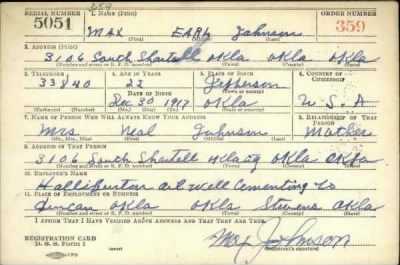 SERIAL NUMBER 1. NAME (Print) ORDER NUMBER
359
5051 MAX EARL Johnson 359
2. ADDRESS (Print)
3106 South Shartell OKla OKla OKla
(Number and street or R. F. D. number) (Town) (County) (State)
3. TELEPHONE 4. AGE IN YEARS 5. PLACE OF BIRTH 6. COUNTRY OF CITIZENSHIP
33840 22 Jefferson
DATE OF BIRTH (Town or county)
Dec 30 1917 OKla U. S. A
7. NAME OF PERSON WHO WILL ALWAYS KNOW YOUR ADDRESS 8. RELATIONSHIP OF THAT PERSON
Mrs Neal Johnson Mother
(Mr., Mrs., Miss) (First) (Middle) (Last)
9. ADDRESS OF THAT PERSON
3106 South Shartell OKla OKla
(Number and street or R. F. D. number) (Town) (County) (State)
10. EMPLOYER'S NAME
Halliburton oil well Cementing Co
11. PLACE OF EMPLOYMENT OR BUSINESS
Duncan Okla Stevens OKla
(Number and street or R. F. D. number) (Town) (County) (State)
I AFFIRM THAT I HAVE VERIFIED ABOVE ANSWERS AND THAT THEY ARE TRUE.
REGISTRATION CARD
D. S. S. Form 1
Max Johnson
(Registrant's signature)